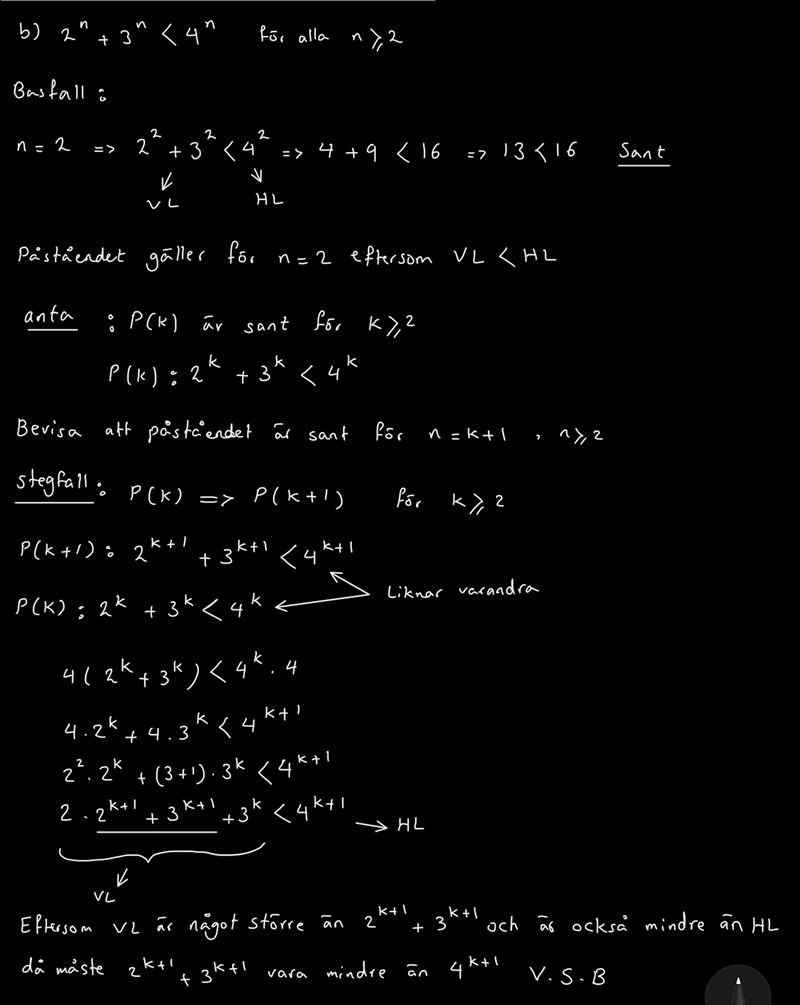 b) 2ⁿ + 3ⁿ < 4ⁿ för alla n ⩾ 2
Basfall :
n = 2 => 2² + 3² < 4² => 4 + 9 < 16 => 13 < 16 Sant
VL HL
Påståendet gäller för n = 2 eftersom VL < HL
anta : P(k) är sant för k ⩾ 2
P(k) : 2ᵏ + 3ᵏ < 4ᵏ
Bevisa att påståendet är sant för n = k+1 , n ⩾ 2
stegfall : P(k) => P(k+1) för k ⩾ 2
P(k+1) : 2ᵏ⁺¹ + 3ᵏ⁺¹ < 4ᵏ⁺¹
P(k) : 2ᵏ + 3ᵏ < 4ᵏ Liknar varandra
4(2ᵏ + 3ᵏ) < 4ᵏ · 4
4 · 2ᵏ + 4 · 3ᵏ < 4ᵏ⁺¹
2² · 2ᵏ + (3+1) · 3ᵏ < 4ᵏ⁺¹
2 · 2ᵏ⁺¹ + 3ᵏ⁺¹ + 3ᵏ < 4ᵏ⁺¹ → HL
VL
Eftersom VL är något större än 2ᵏ⁺¹ + 3ᵏ⁺¹ och är också mindre än HL
då måste 2ᵏ⁺¹ + 3ᵏ⁺¹ vara mindre än 4ᵏ⁺¹ V.S.B